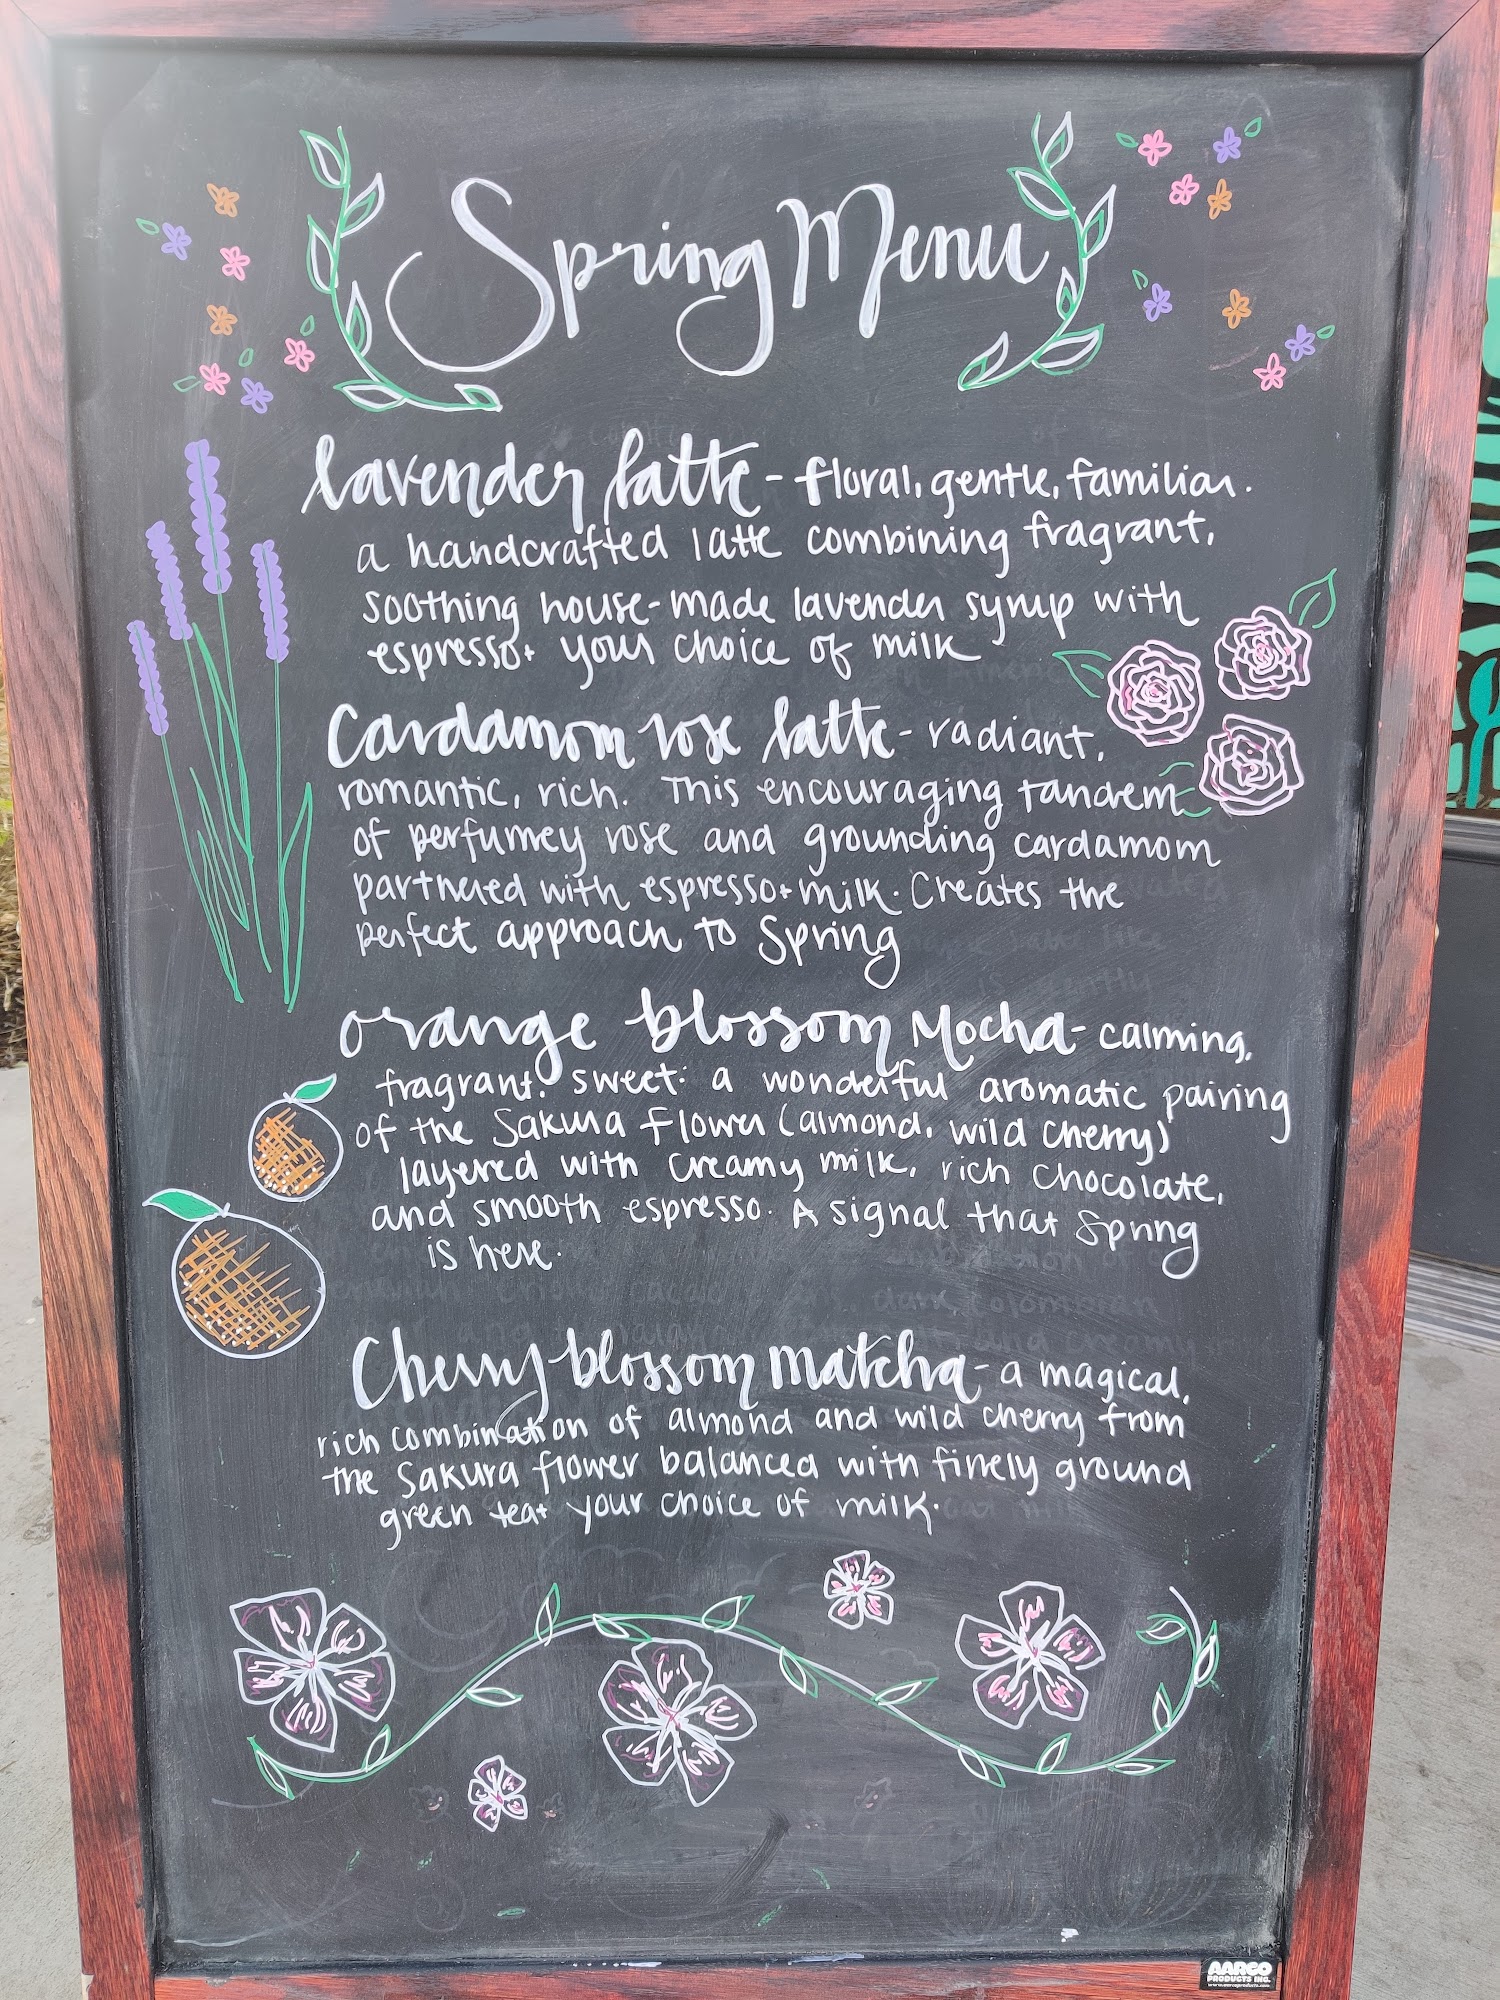 Spring Menu
lavender latte - floral, gentle, familiar.
a handcrafted latte combining fragrant,
soothing house-made lavender syrup with
espresso + your choice of milk
Cardamom rose latte - radiant,
romantic, rich. This encouraging tandem
of perfumey rose and grounding cardamom
partnered with espresso + milk. Creates the
perfect approach to Spring
orange blossom Mocha - calming,
fragrant, sweet: a wonderful aromatic pairing
of the Sakura Flower (almond, wild cherry)
layered with creamy milk, rich chocolate,
and smooth espresso. A signal that Spring
is here.
Cherry blossom matcha - a magical,
rich combination of almond and wild cherry from
the Sakura flower balanced with finely ground
green tea + your choice of milk.
AARCO
PRODUCTS INC.